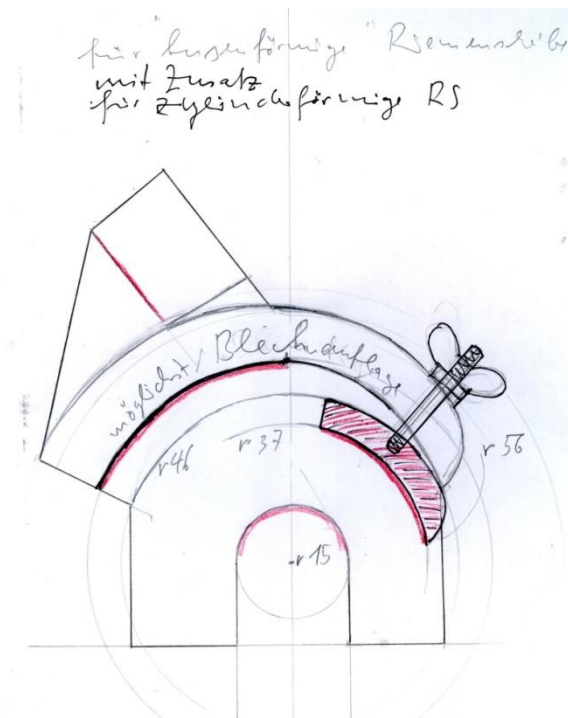 für "busenförmige" Riemenscheibe
mit Zusatz
für zylinderförmige RS
möglichst Blechauflage
r 46
r 37
r 56
r 15